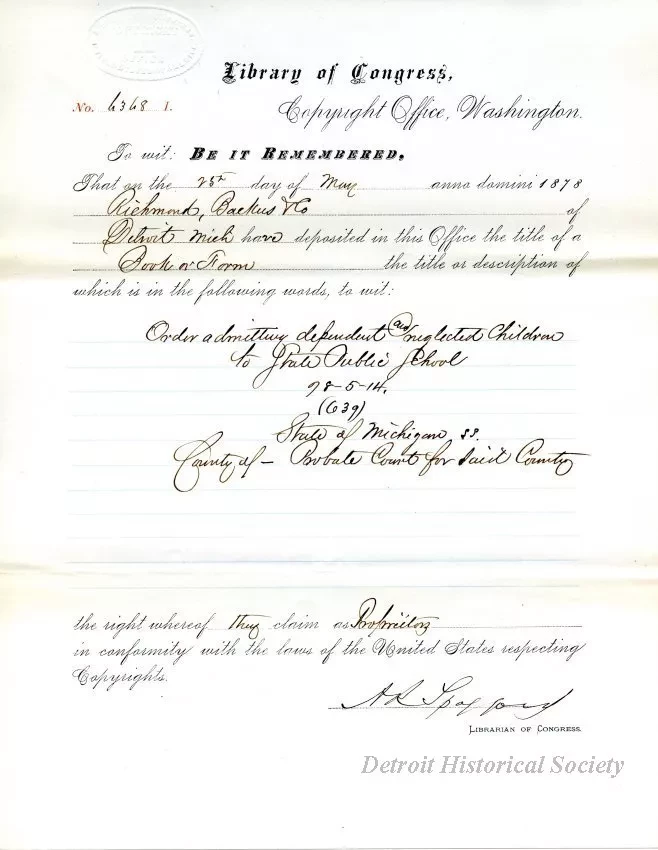 Library of Congress,
No. 6368 I.
Copyright Office, Washington.
To wit: BE IT REMEMBERED,
That on the 25th day of May anno domini 1878
Richmond, Backus & Co of
Detroit Mich have deposited in this Office the title of a
Book or Form the title or description of
which is in the following words, to wit:
Order admitting dependent and neglected Children
to State Public School
78-5-14.
(639)
State of Michigan ss.
County of — Probate Court for said County
the right whereof they claim as Proprietors
in conformity with the laws of the United States respecting
Copyrights.
A R Spofford
LIBRARIAN OF CONGRESS.
Detroit Historical Society